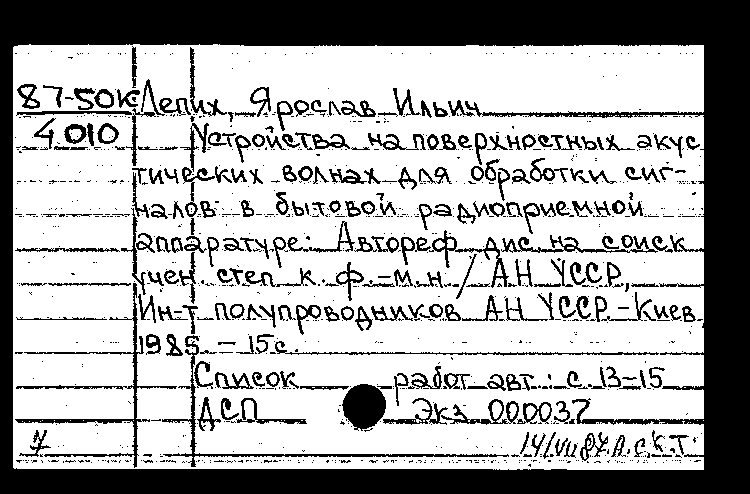 87-50К Лепих, Ярослав Ильич
4010 Устройства на поверхностных акус
тических волнах для обработки сиг-
налов в бытовой радиоприемной
аппаратуре: Автореф. дис. на соиск
учен. степ. к. ф.-м.н / АН УССР,
Ин-т полупроводников АН УССР.-Киев,
1985. - 15 с.
Список работ авт.: с. 13-15
ДСП Экз 000037
7 14/VII 87. А. С.К.Т.